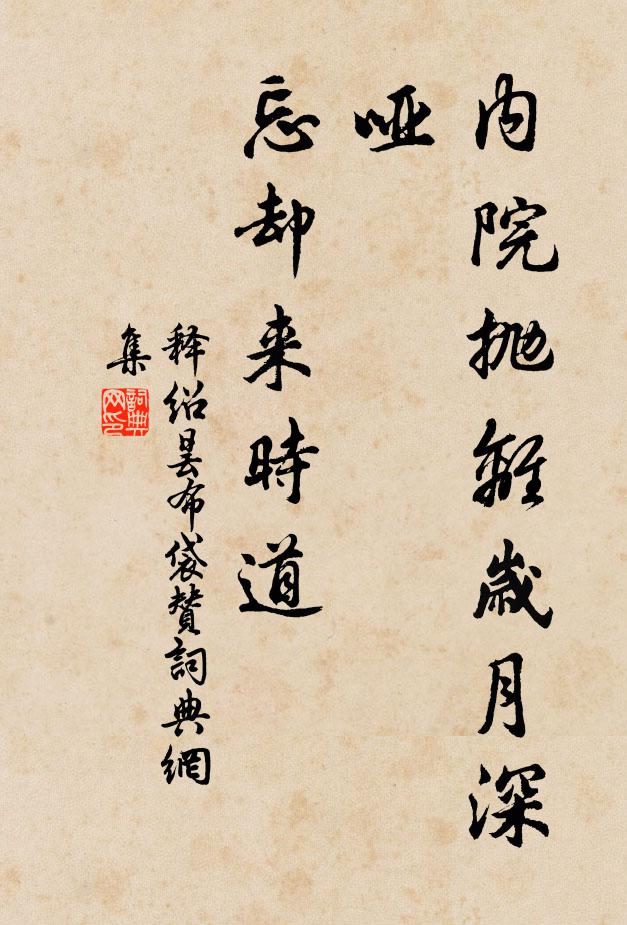 内院抛離歲月深
哑
忘却来時道
释绍昙布袋赞詞典網
集
詞典
网印